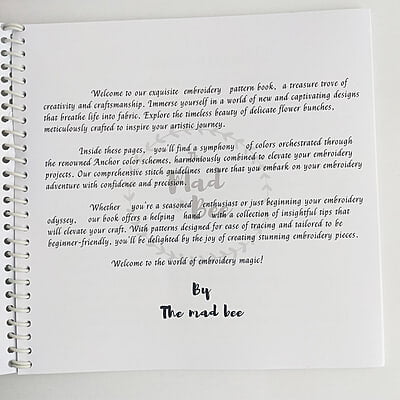 Welcome to our exquisite embroidery pattern book, a treasure trove of
creativity and craftsmanship. Immerse yourself in a world of new and captivating designs
that breathe life into fabric. Explore the timeless beauty of delicate flower bunches,
meticulously crafted to inspire your artistic journey.
Inside these pages, you'll find a symphony of colors orchestrated through
the renowned Anchor color schemes, harmoniously combined to elevate your embroidery
projects. Our comprehensive stitch guidelines ensure that you embark on your embroidery
adventure with confidence and precision.
Mad
Bee
Whether you're a seasoned enthusiast or just beginning your embroidery
odyssey, our book offers a helping hand with a collection of insightful tips that
will elevate your craft. With patterns designed for ease of tracing and tailored to be
beginner-friendly, you'll be delighted by the joy of creating stunning embroidery pieces.
Welcome to the world of embroidery magic!
By
The mad bee